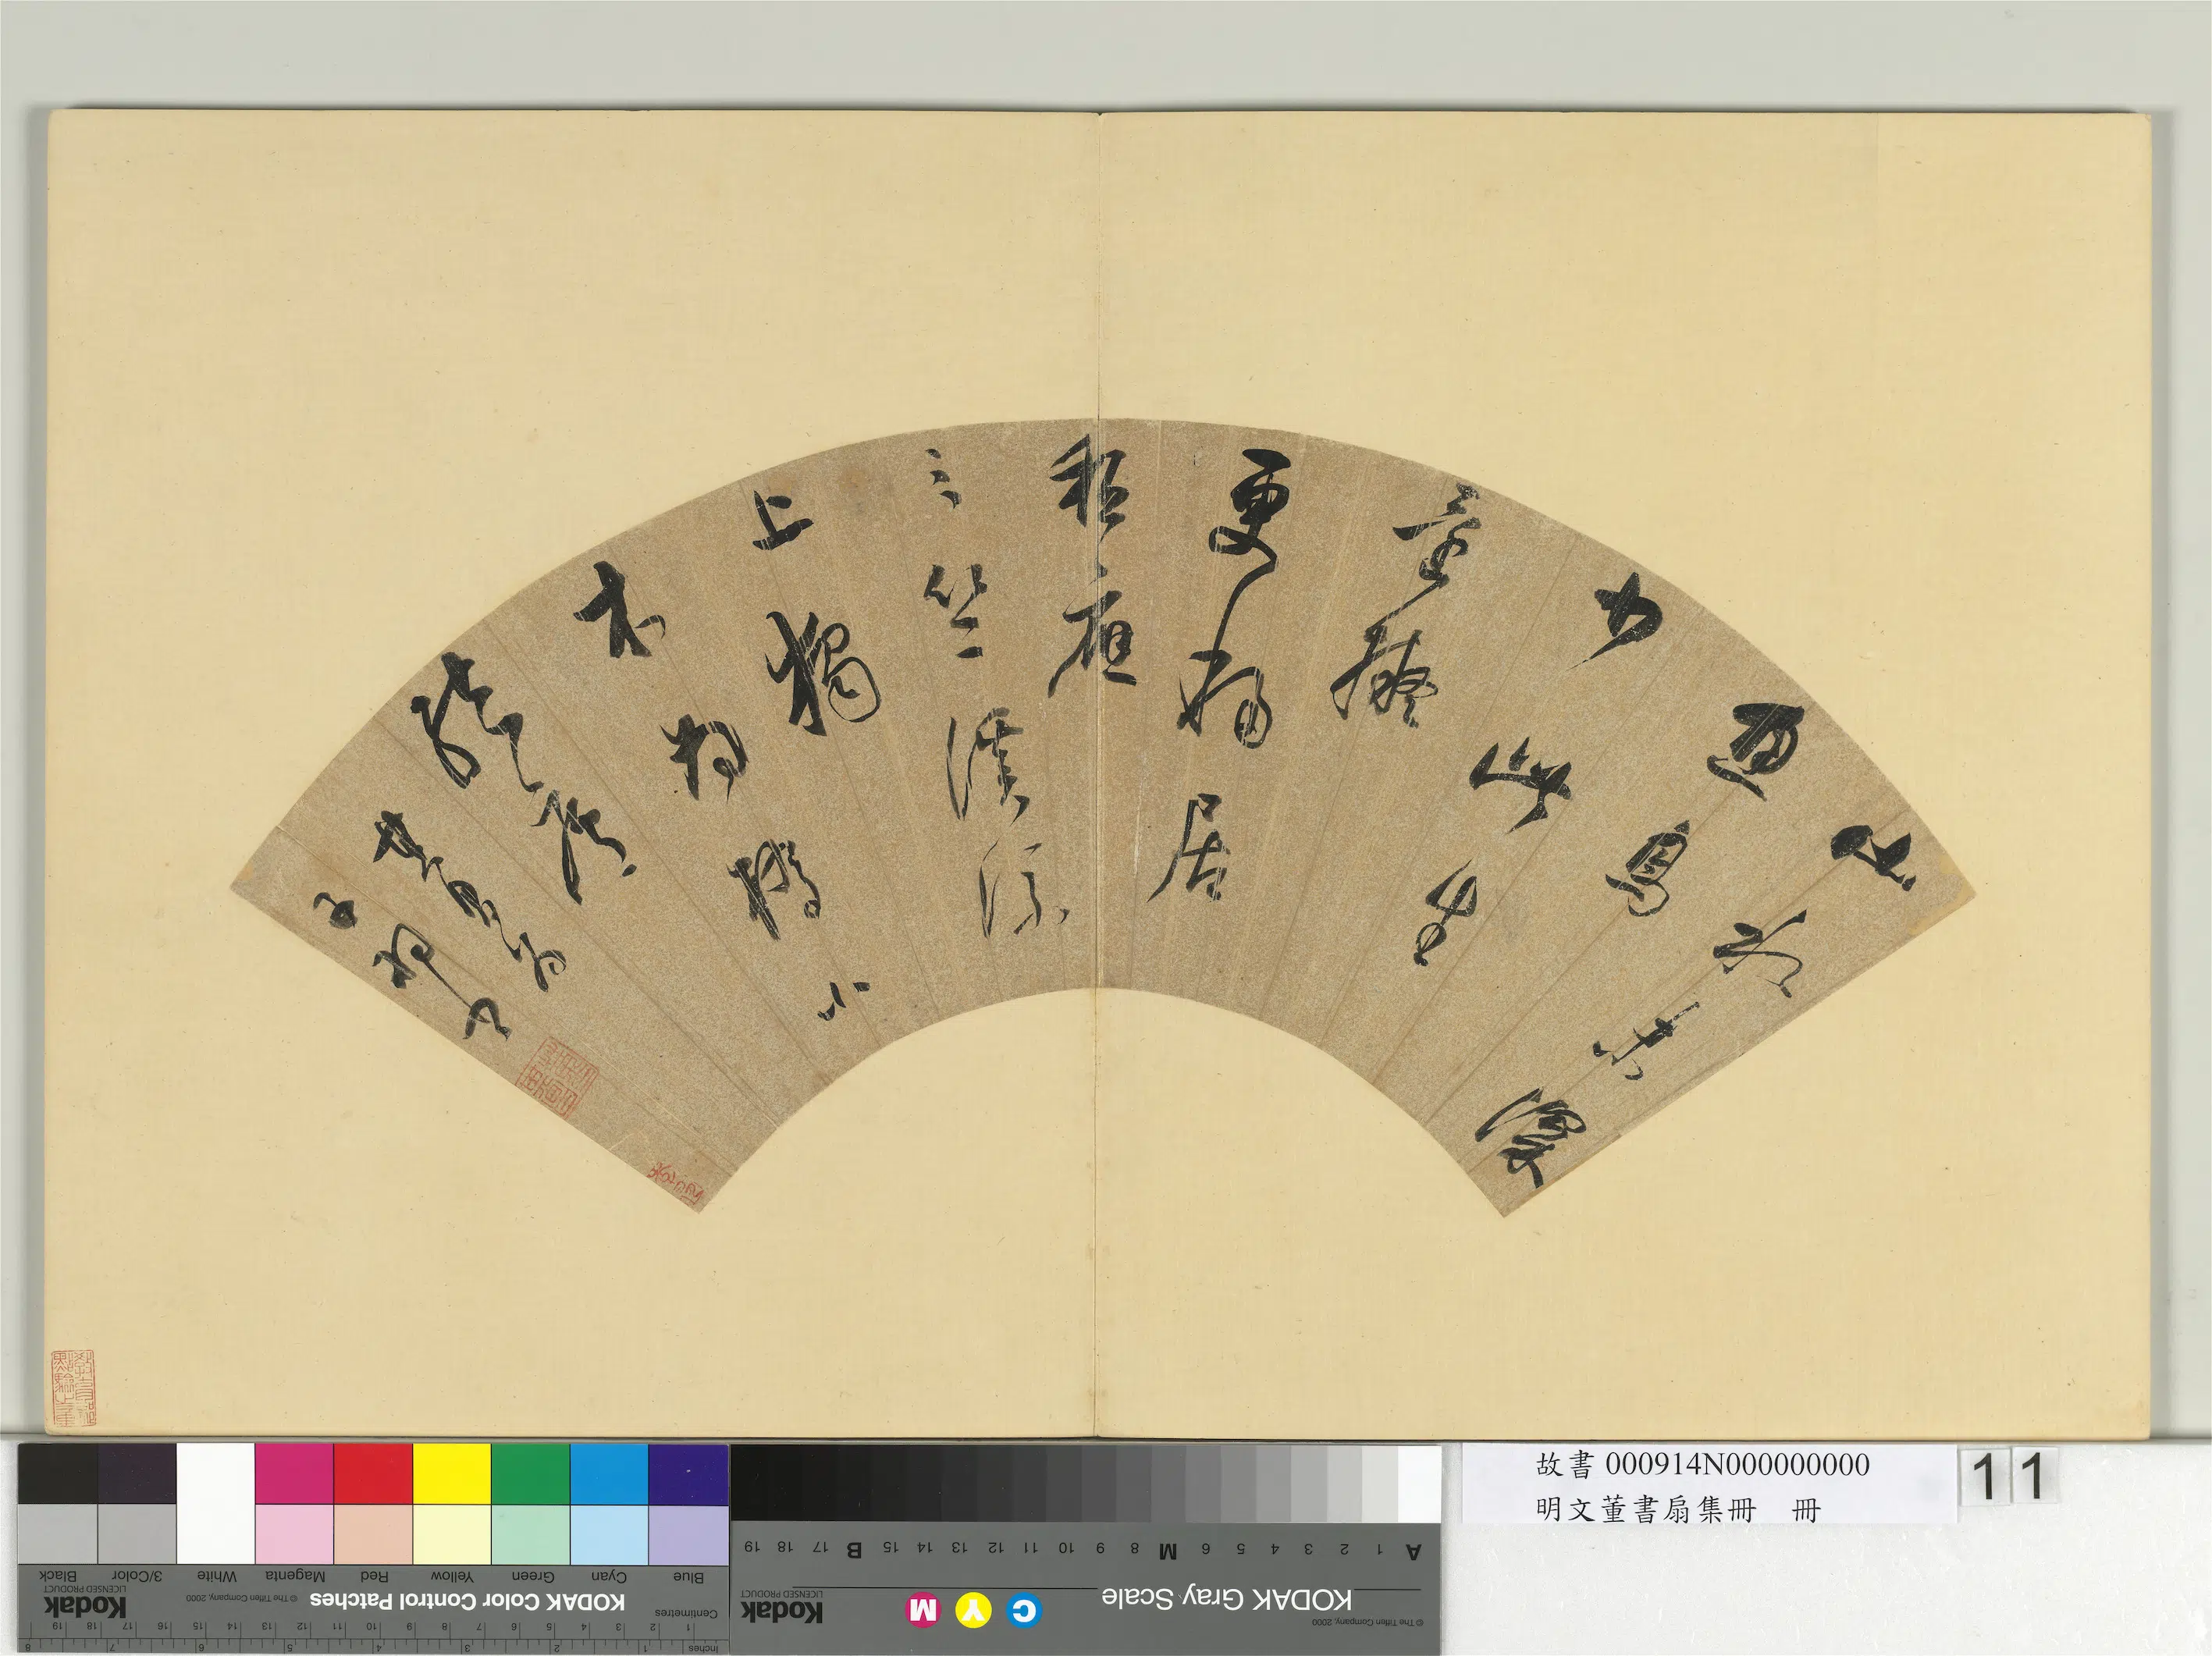 山水未深
魚鳥
少此生
還擬
更移居
秖應
三竺溪流
上獨
木為橋小
結廬
其昌
故書 000914N000000000
明文董書扇集冊 冊
11
Blue Cyan Green Yellow Red Magenta White 3/Color Black
KODAK Color Control Patches
© The Tiffen Company, 2000
Kodak
LICENSED PRODUCT
Centimetres
1 2 3 4 5 6 7 8 9 10 11 12 13 14 15 16 17 18 19
Inches 1 2 3 4 5 6 7 8
A 1 2 3 4 5 6 M 8 9 10 11 12 13 14 15 B 17 18 19
KODAK Gray Scale
C Y M
Kodak
LICENSED PRODUCT
© The Tiffen Company, 2000